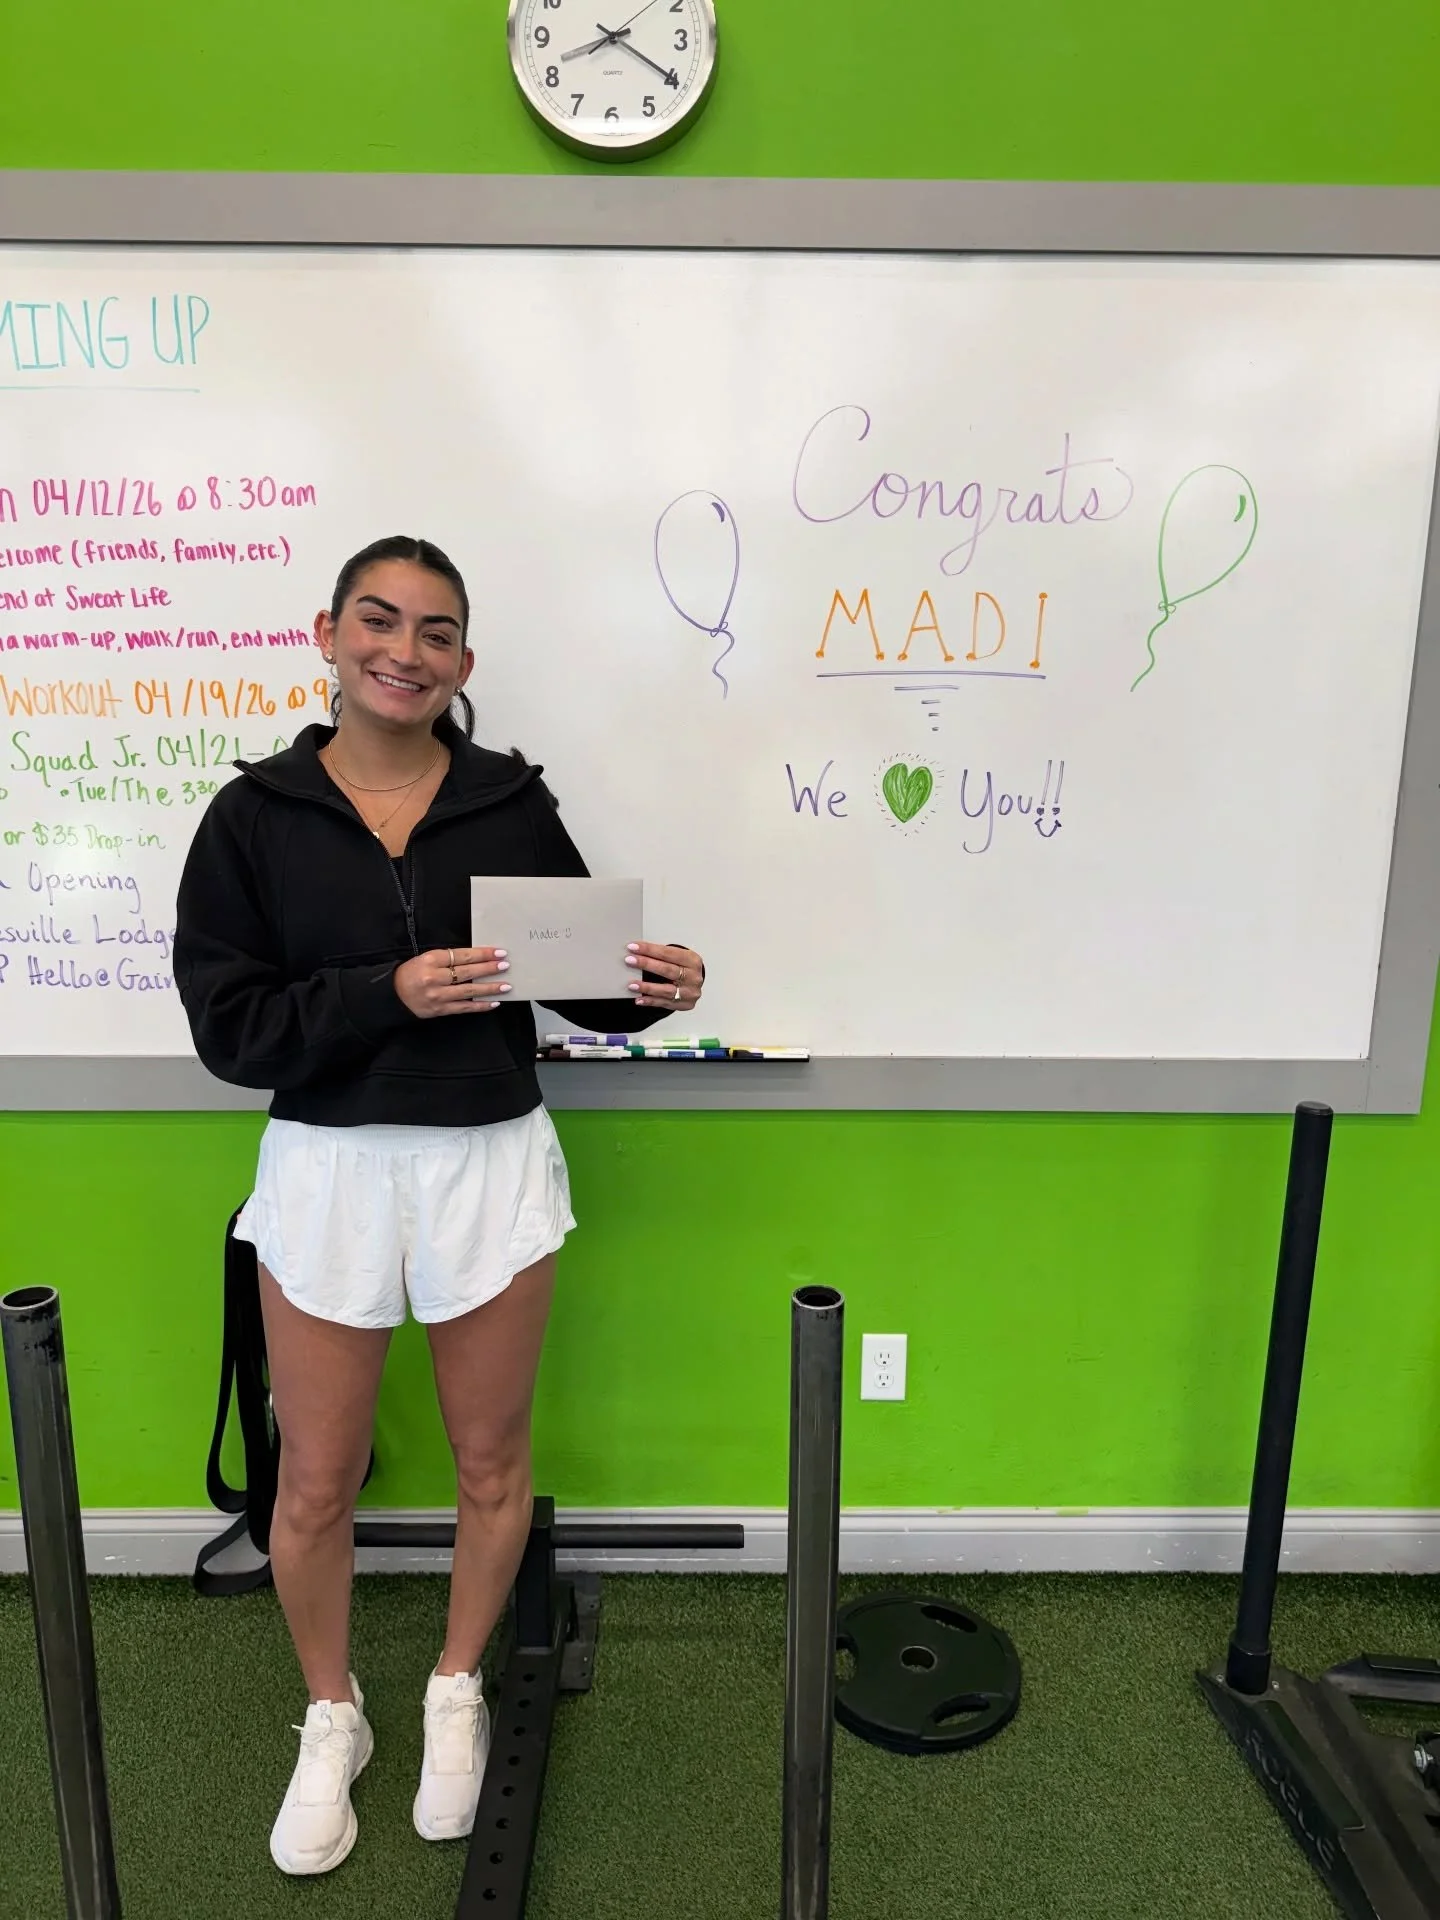 10 2
9 3
QUARTZ
8 4
7 6 5
MING UP
04/12/26 @ 8:30am
elcome (friends, family, etc.)
end at Sweat Life
a warm-up, walk/run, end with
Workout 04/19/26 @ 9
Squad Jr. 04/21-
• Tue/Th @ 3:30
or $35 Drop-in
Opening
esville Lodge
P Hello@Gain
Congrats
MADI
We You!!
Madie
ROGUE